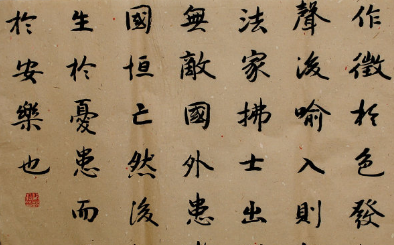 作徵於色發
聲後喻入則
法家拂士出
無敵國外患
國恒亡然後
生於憂患而
於安樂也